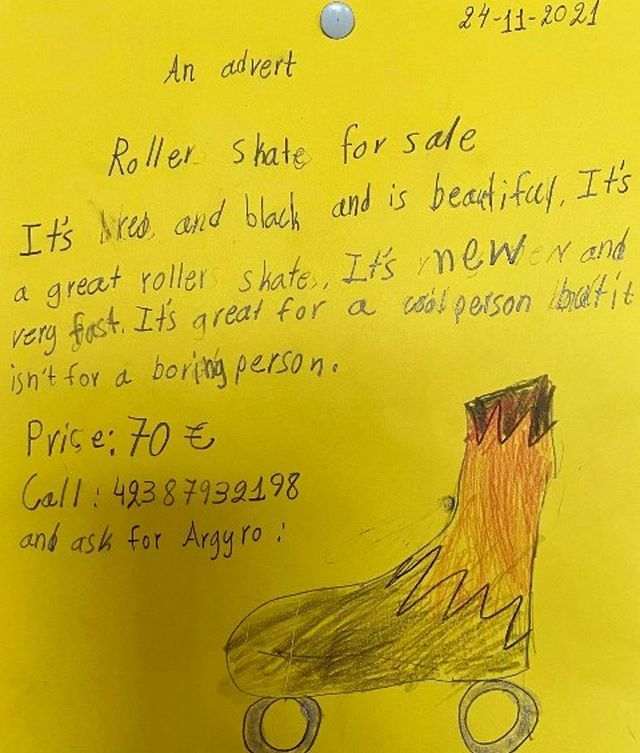 24-11-2021
An advert
Roller skate for sale
It's red and black and is beautiful. It's
a great roller skate. It's new and
very fast. It's great for a cool person but it
isn't for a boring person.
Price: 70 €
Call: 42387932198
and ask for Argyro: